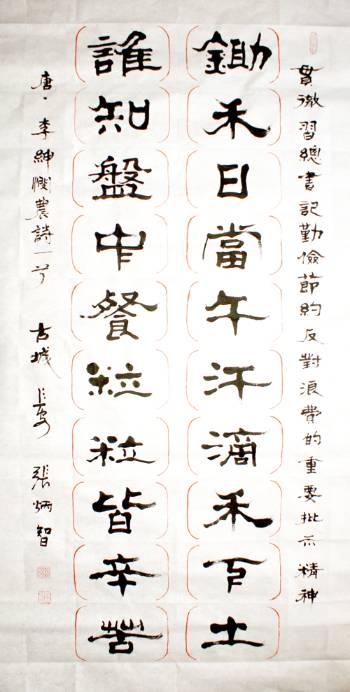 貫徹習總書記勤儉節約反對浪費的重要批示精神
鋤禾日當午汗滴禾下土
誰知盤中餐粒粒皆辛苦
唐·李紳憫農詩一首 古城長安 張炳智